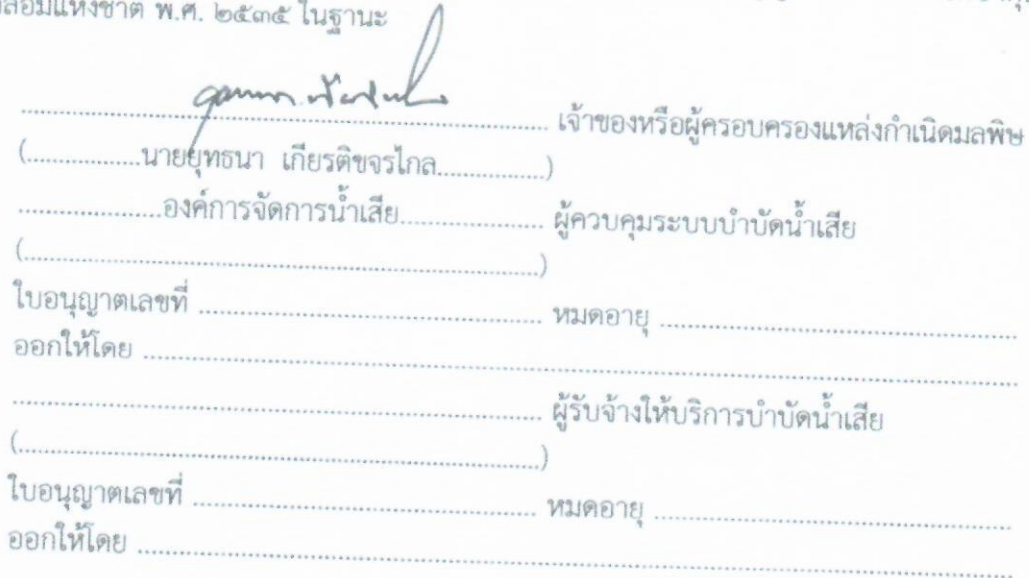 แห่งชาติ พ.ศ. ๒๕๓๕ ในฐานะ
........................ เจ้าของหรือผู้ครอบครองแหล่งกำเนิดมลพิษ
(................นายยุทธนา เกียรติขจรไกล...............)
....................องค์การจัดการน้ำเสีย.................... ผู้ควบคุมระบบบำบัดน้ำเสีย
(........................................)
ใบอนุญาตเลขที่ ........................ หมดอายุ ........................
ออกให้โดย ........................................
........................ ผู้รับจ้างให้บริการบำบัดน้ำเสีย
(........................................)
ใบอนุญาตเลขที่ ........................ หมดอายุ ........................
ออกให้โดย ........................................